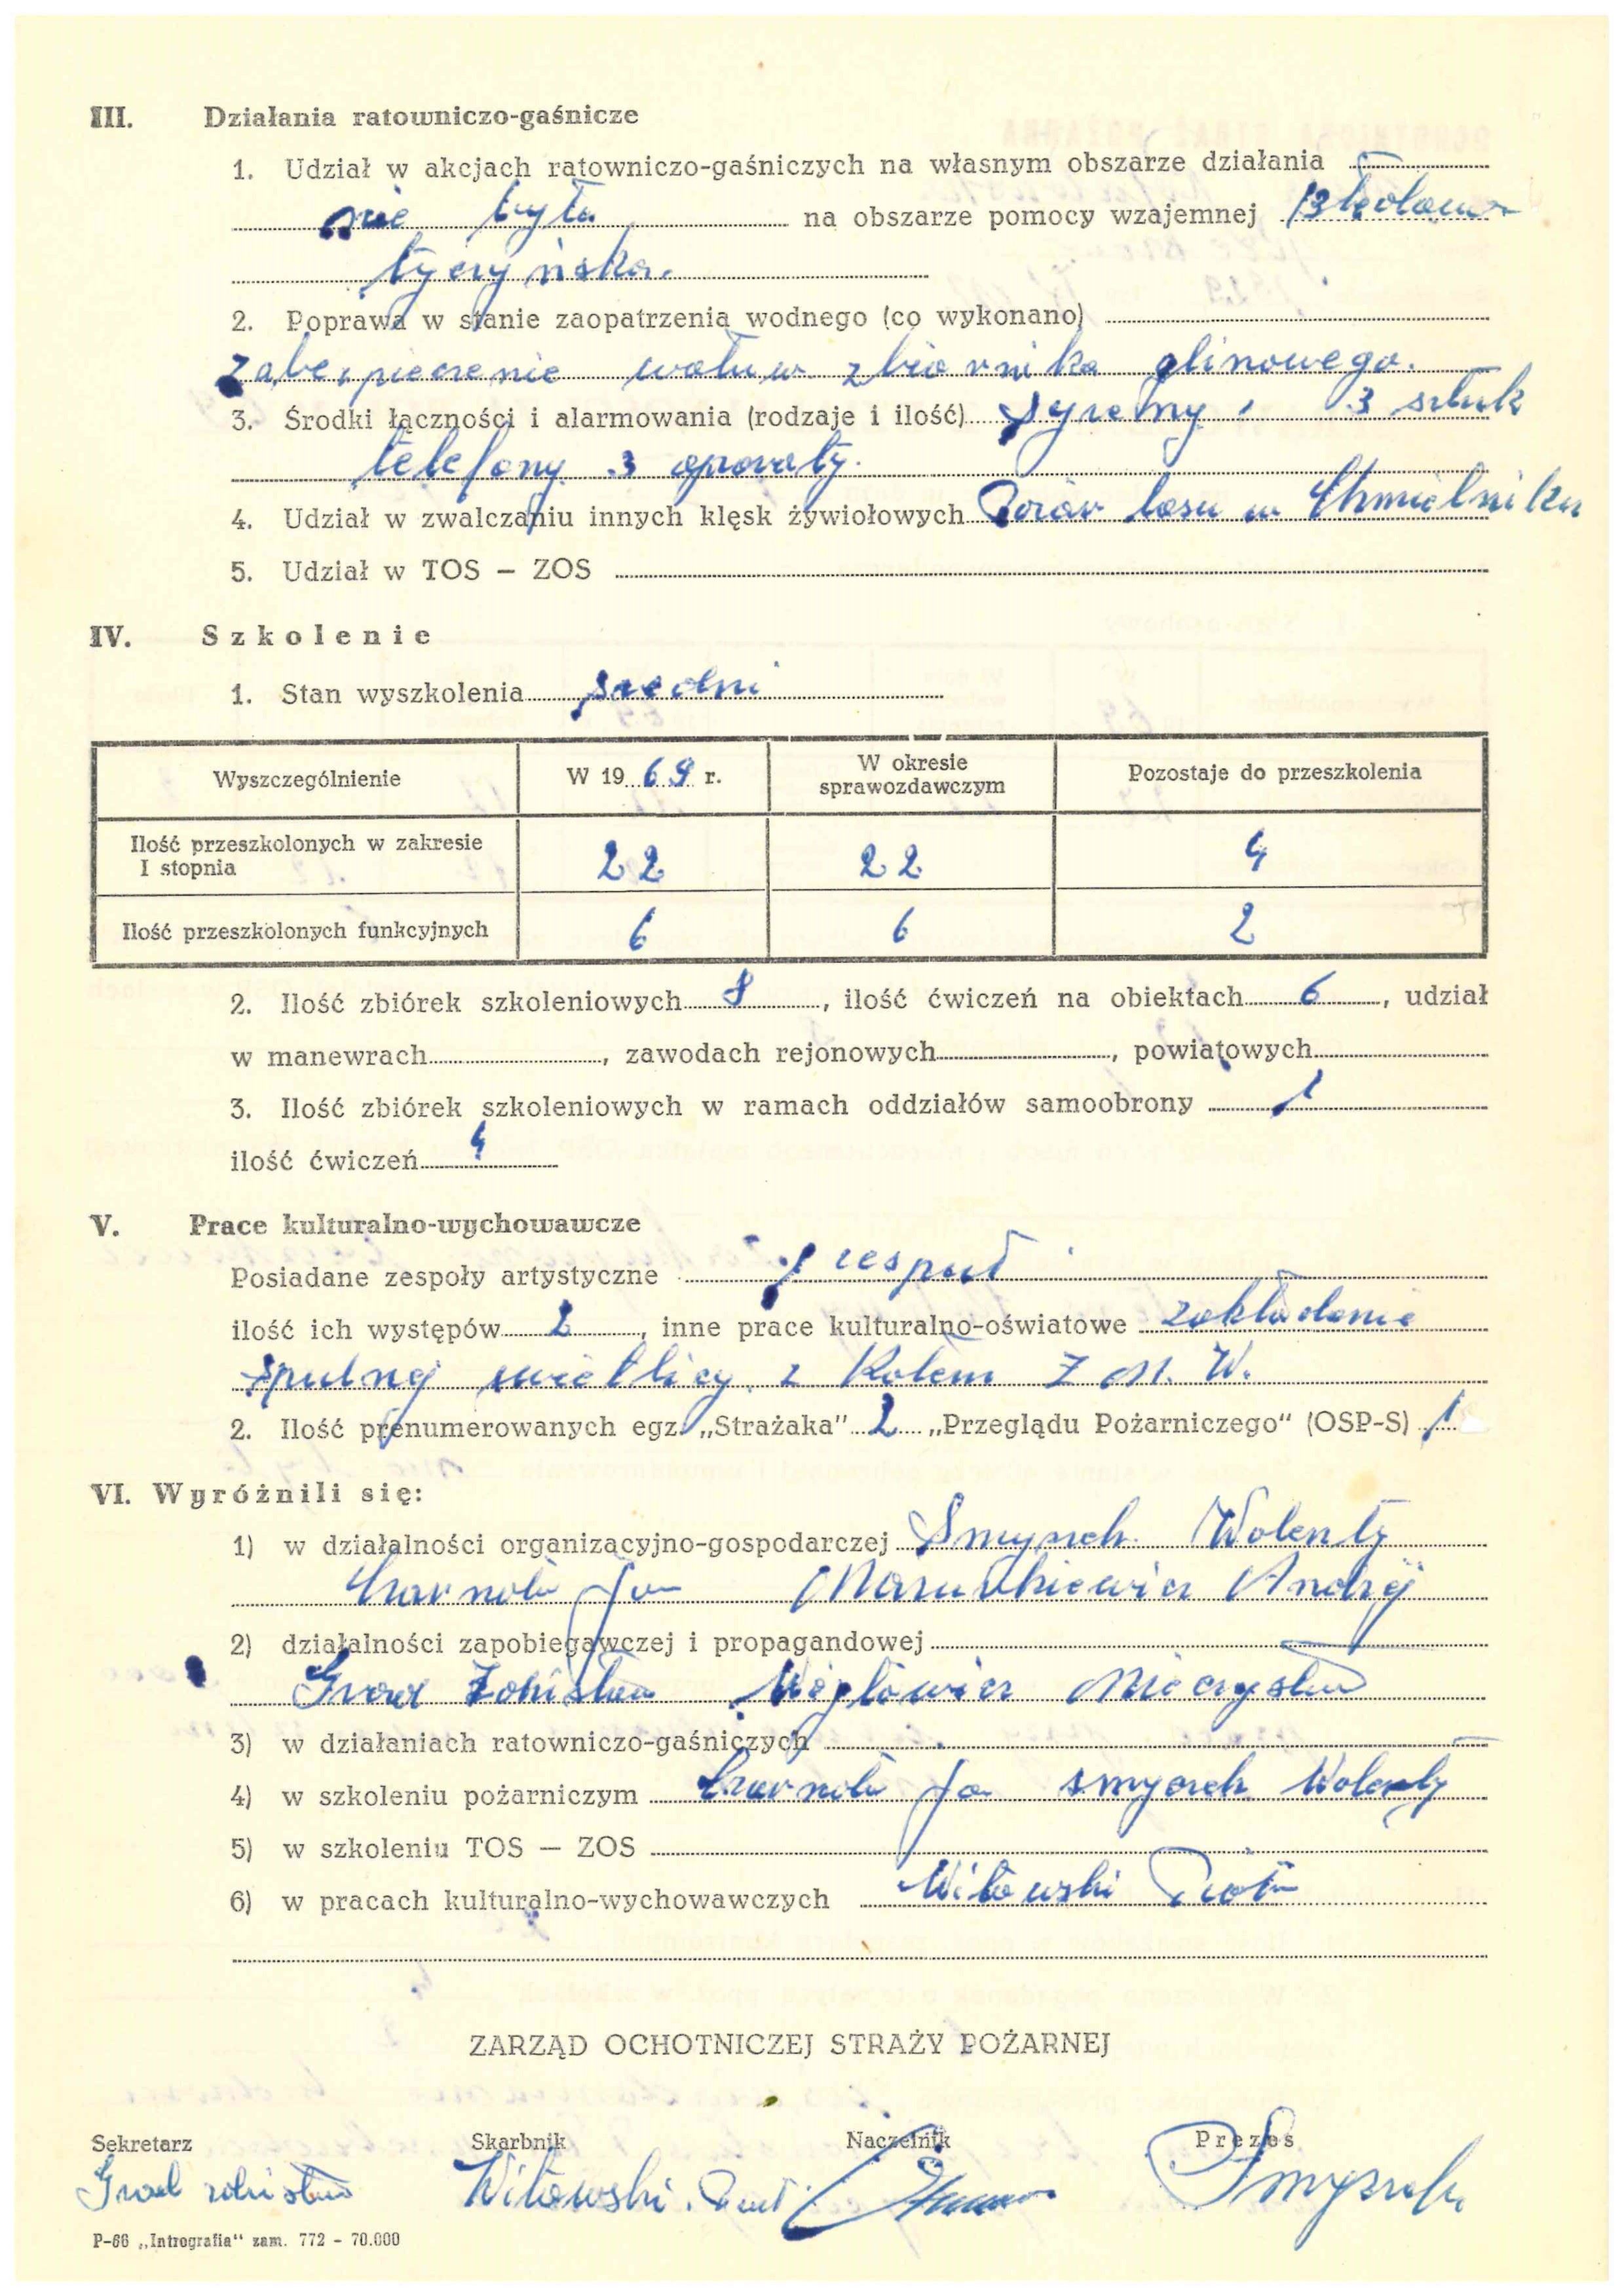 III. Działania ratowniczo-gaśnicze
1. Udział w akcjach ratowniczo-gaśniczych na własnym obszarze działania
nie było na obszarze pomocy wzajemnej
tyczyńska.
2. Poprawa w stanie zaopatrzenia wodnego (co wykonano)
zabezpieczenie wałuw zbiornika glinowego.
3. Środki łączności i alarmowania (rodzaje i ilość) syreny 3 sztuk
telefony 3 aparaty.
4. Udział w zwalczaniu innych klęsk żywiołowych Pożar lasu w Chmielniku
5. Udział w TOS – ZOS
IV. Szkolenie
1. Stan wyszkolenia średni
Wyszczególnienie W 1969 r. W okresie sprawozdawczym Pozostaje do przeszkolenia
Ilość przeszkolonych w zakresie I stopnia 22 22 4
Ilość przeszkolonych funkcyjnych 6 6 2
2. Ilość zbiórek szkoleniowych 8, ilość ćwiczeń na obiektach 6, udział
w manewrach, zawodach rejonowych, powiatowych
3. Ilość zbiórek szkoleniowych w ramach oddziałów samoobrony 1
ilość ćwiczeń 4
V. Prace kulturalno-wychowawcze
Posiadane zespoły artystyczne 1 zespuł
ilość ich występów 2, inne prace kulturalno-oświatowe zakładanie
spulnej świetlicy z Kołem Z M. W.
2. Ilość prenumerowanych egz. „Strażaka" 2 „Przeglądu Pożarniczego" (OSP-S) 1
VI. Wyróżnili się:
1) w działalności organizacyjno-gospodarczej Smyrek Walenty
Czarnota Jan Andrzej
2) działalności zapobiegawczej i propagandowej
Mieczysław
3) w działaniach ratowniczo-gaśniczych
4) w szkoleniu pożarniczym Czarnota Jan Walenty
5) w szkoleniu TOS — ZOS
6) w pracach kulturalno-wychowawczych Witowski Piotr
ZARZĄD OCHOTNICZEJ STRAŻY POŻARNEJ
Sekretarz Skarbnik Naczelnik Prezes
Witowski
P-66 „Intrografia" zam. 772 - 70.000